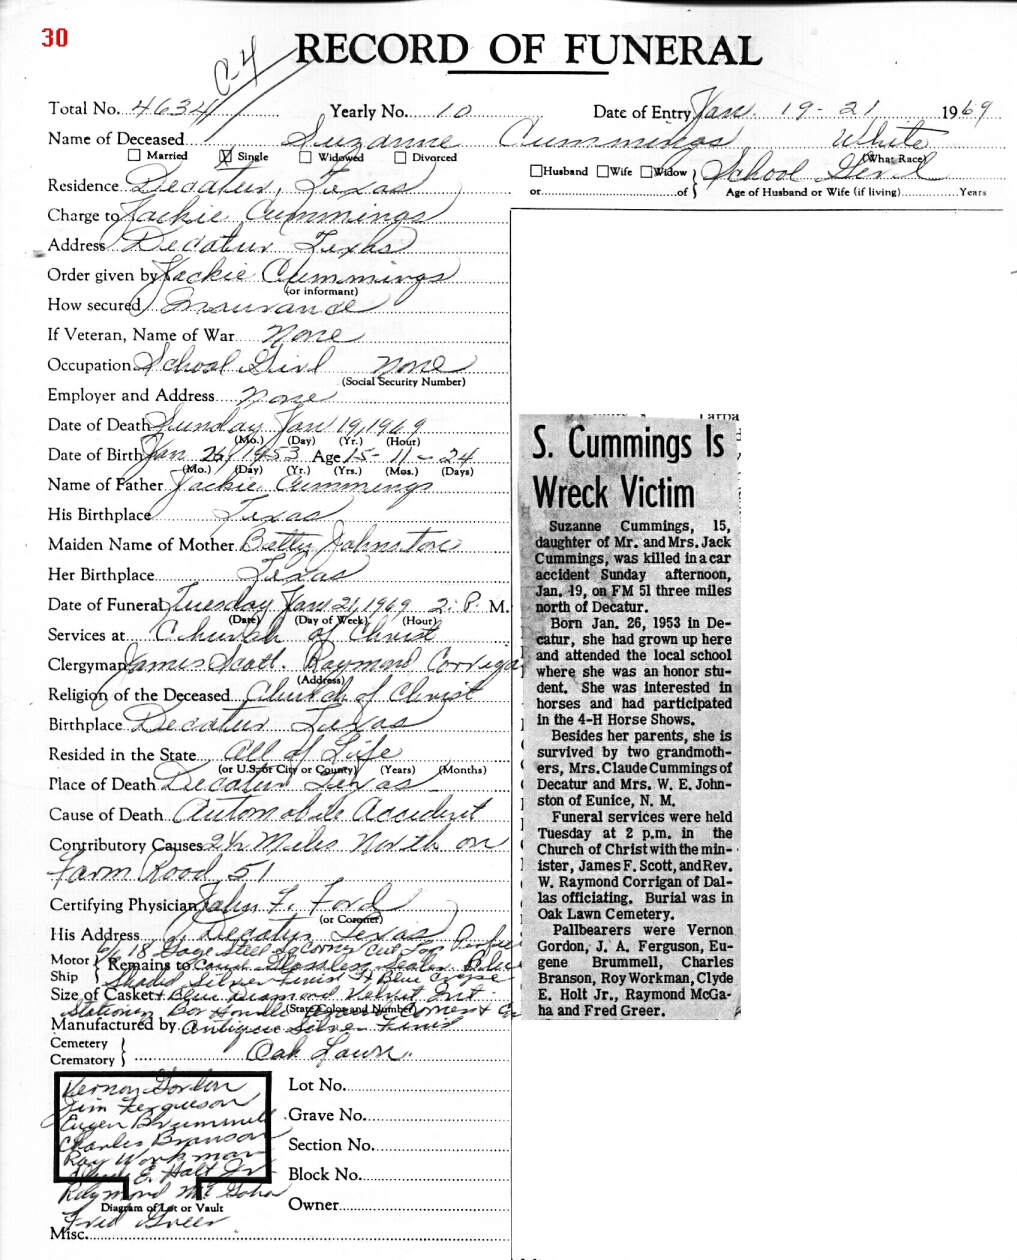 30
C-4
RECORD OF FUNERAL
Total No. 4634 Yearly No. 10 Date of Entry Jan. 19-21 1969
Name of Deceased Suzanne Cummings White
(What Race)
Married Single Widowed Divorced
Husband Wife Widow School Girl
or of Age of Husband or Wife (if living) Years
Residence Decatur, Texas
Charge to Jackie Cummings
Address Decatur Texas
Order given by Jackie Cummings
(or informant)
How secured Insurance
If Veteran, Name of War None
Occupation School Girl None
(Social Security Number)
Employer and Address None
Date of Death Sunday Jan 19, 1969
(Mo.) (Day) (Yr.) (Hour)
Date of Birth Jan 26, 1953 Age 15-11-24
(Mo.) (Day) (Yr.) (Yrs.) (Mos.) (Days)
Name of Father Jackie Cummings
His Birthplace Texas
Maiden Name of Mother Betty Johnston
Her Birthplace Texas
Date of Funeral Tuesday Jan 21, 1969 2: P. M.
(Date) (Day of Week) (Hour)
Services at Church of Christ
Clergyman James Scott. Raymond Corrigan
(Address)
Religion of the Deceased Church of Christ
Birthplace Decatur Texas
Resided in the State All of Life
(or U.S. or City or County) (Years) (Months)
Place of Death Decatur Texas
Cause of Death Automobile Accident
Contributory Causes 2½ Miles North on
Farm Rood 51
Certifying Physician John F. Ford
(or Coroner)
His Address Decatur Texas
6/6 18 Gage Steel Sq Corner Cut Top
Motor
Ship
Remains to Sealer Blue
Shaded Silver Finish Blue Crepe
Size of Casket Blue Diamond Velvet Int
(State Color and Number)
Stationary Bar Handles Corners
Manufactured by Antique Silver Finis
Cemetery
Crematory Oak Lawn.
Vernon Gordon
Jim Fergueson
Eugen Brummell
Charles Branson
Roy Workman
Clyde E. Holt Jr.
Raymond McGaha
Diagram of Lot or Vault
Fred Greer
Misc.
Lot No.
Grave No.
Section No.
Block No.
Owner
S. Cummings Is
Wreck Victim
Suzanne Cummings, 15,
daughter of Mr. and Mrs. Jack
Cummings, was killed in a car
accident Sunday afternoon,
Jan. 19, on FM 51 three miles
north of Decatur.
Born Jan. 26, 1953 in De-
catur, she had grown up here
and attended the local school
where she was an honor stu-
dent. She was interested in
horses and had participated
in the 4-H Horse Shows.
Besides her parents, she is
survived by two grandmoth-
ers, Mrs. Claude Cummings of
Decatur and Mrs. W. E. John-
ston of Eunice, N. M.
Funeral services were held
Tuesday at 2 p.m. in the
Church of Christ with the min-
ister, James F. Scott, and Rev.
W. Raymond Corrigan of Dal-
las officiating. Burial was in
Oak Lawn Cemetery.
Pallbearers were Vernon
Gordon, J. A. Ferguson, Eu-
gene Brummell, Charles
Branson, Roy Workman, Clyde
E. Holt Jr., Raymond McGa-
ha and Fred Greer.